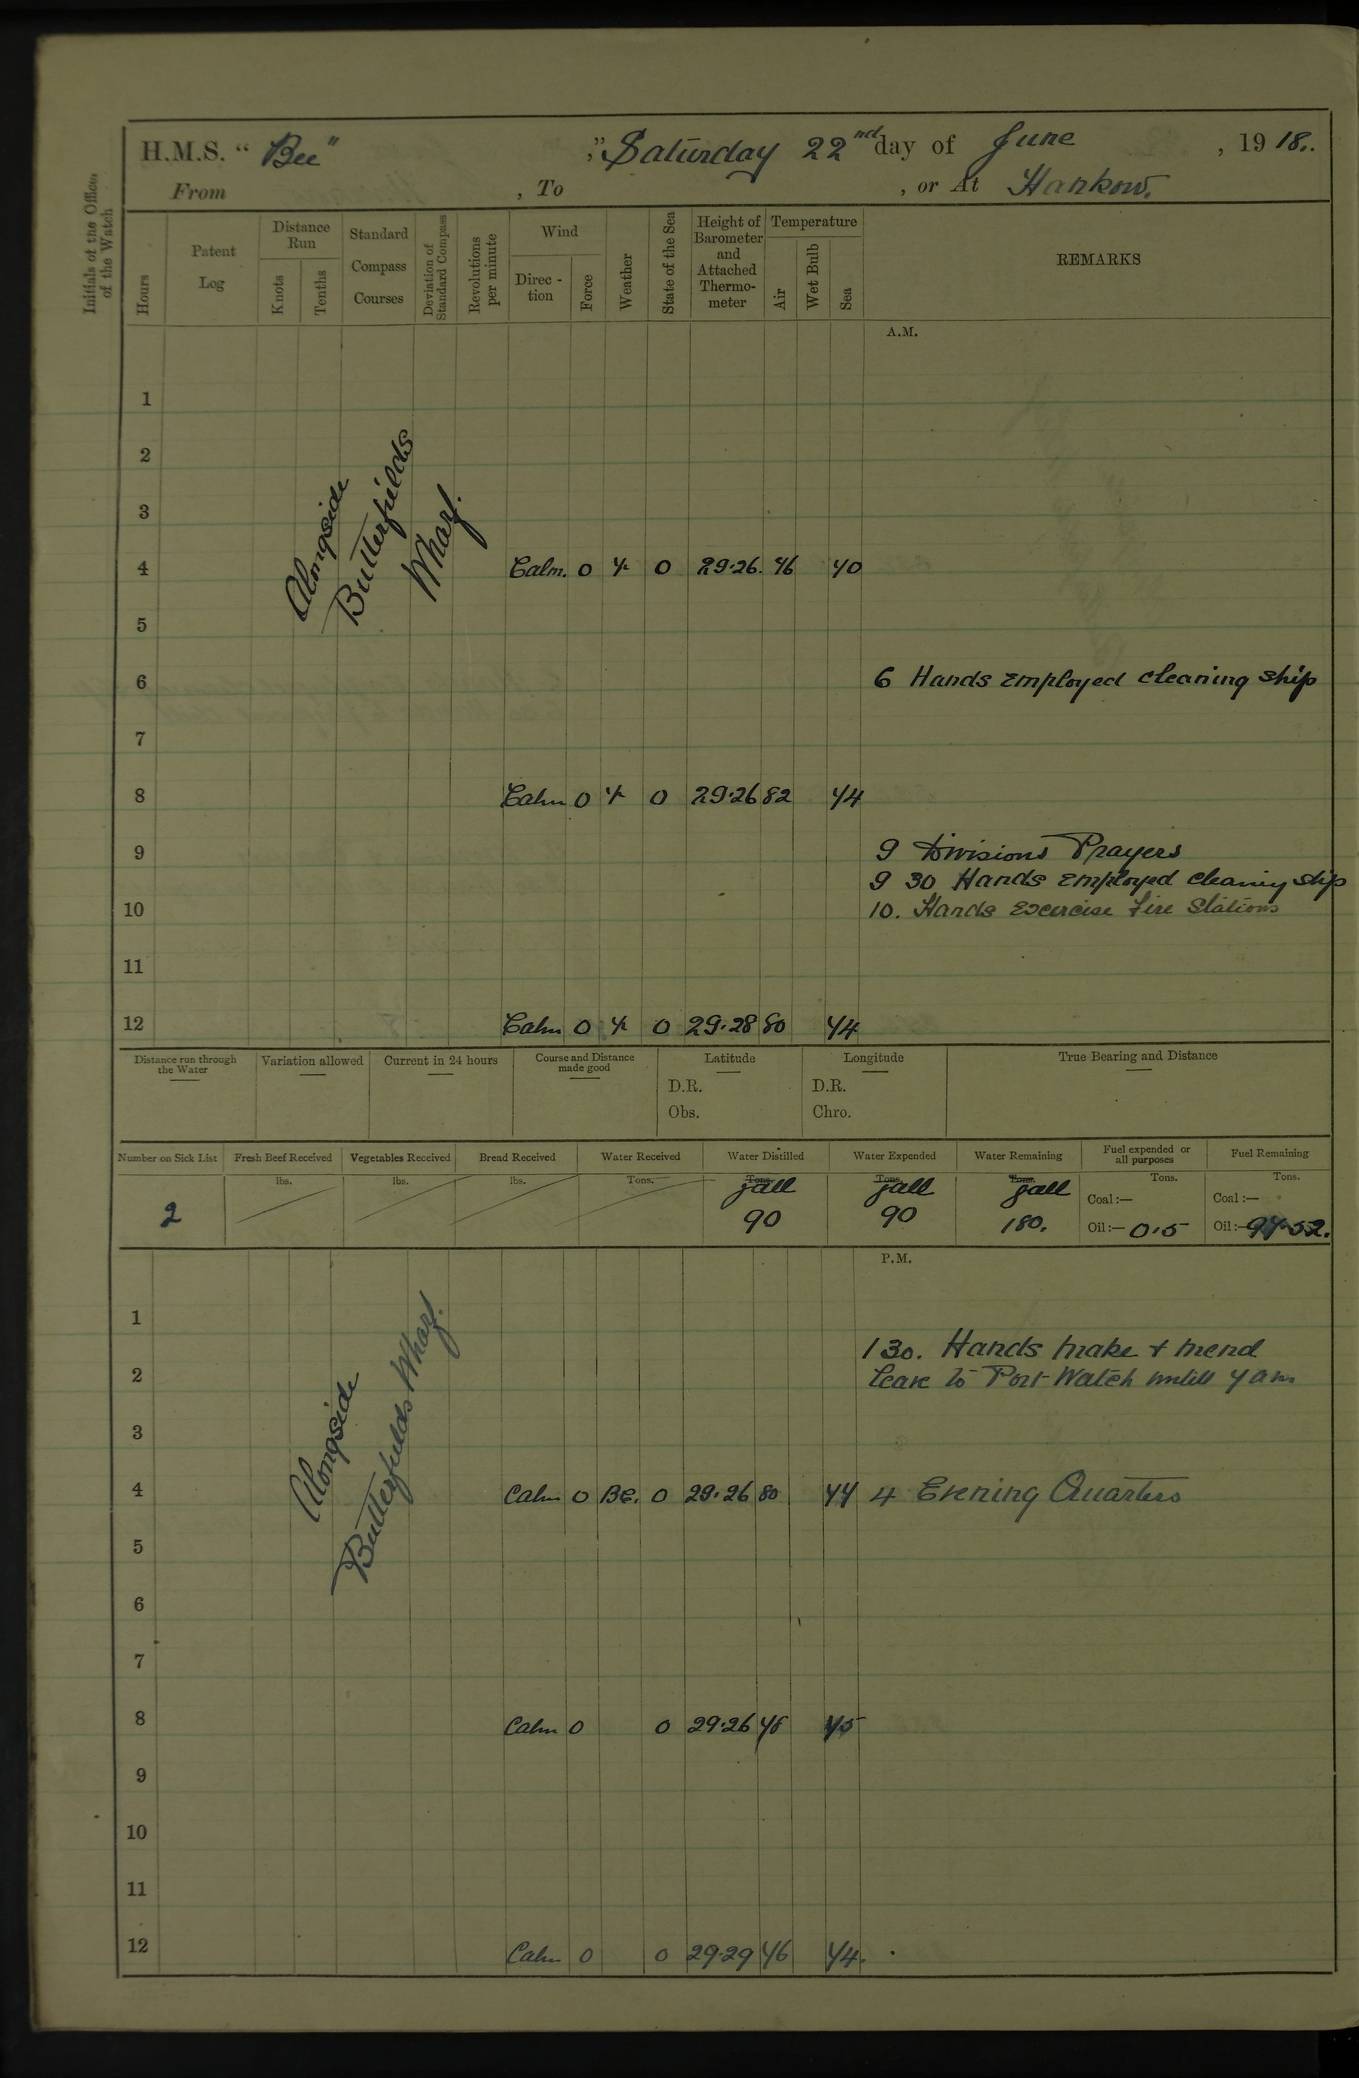 H.M.S. “ Bee” ,” Saturday 22nd day of June , 19 18.
From , To , or At Hankow.
Initials of the Officer of the Watch
Hours
Patent Log
Distance Run
Knots
Tenths
Standard Compass Courses
Deviation of Standard Compass
Revolutions per minute
Wind
Direc - tion
Force
Weather
State of the Sea
Height of Barometer and Attached Thermo- meter
Temperature
Air
Wet Bulb
Sea
REMARKS
A.M.
1
2
3
Alongside
Butterfields
Wharf.
4 Calm. 0 0 29.26. 76 70
5
6 6 Hands Employed cleaning ship
7
8 Calm 0 0 29.26 82 74
9 9 Divisions Prayers
9 30 Hands Employed cleaning ship
10 10. Hands Exercise Fire Stations
11
12 Calm 0 0 29.28 80 74
Distance run through the Water
Variation allowed
Current in 24 hours
Course and Distance made good
Latitude
D.R.
Obs.
Longitude
D.R.
Chro.
True Bearing and Distance
Number on Sick List
2
Fresh Beef Received
lbs.
Vegetables Received
lbs.
Bread Received
lbs.
Water Received
Tons.
Water Distilled
Tons.
gall
90
Water Expended
Tons.
gall
90
Water Remaining
Tons.
gall
180.
Fuel expended or all purposes
Tons.
Coal :—
Oil :— 0.5
Fuel Remaining
Tons.
Coal :—
Oil :—
P.M.
1
130. Hands make + mend
2 Leave to Port Watch untill 7 am
3
Alongside
Butterfields Wharf.
4 Calm 0 BC. 0 29.26 80 77 4 Evening Quarters
5
6
7
8 Calm 0 0 29.26 78 75
9
10
11
12 Calm 0 0 29.29 76 74.